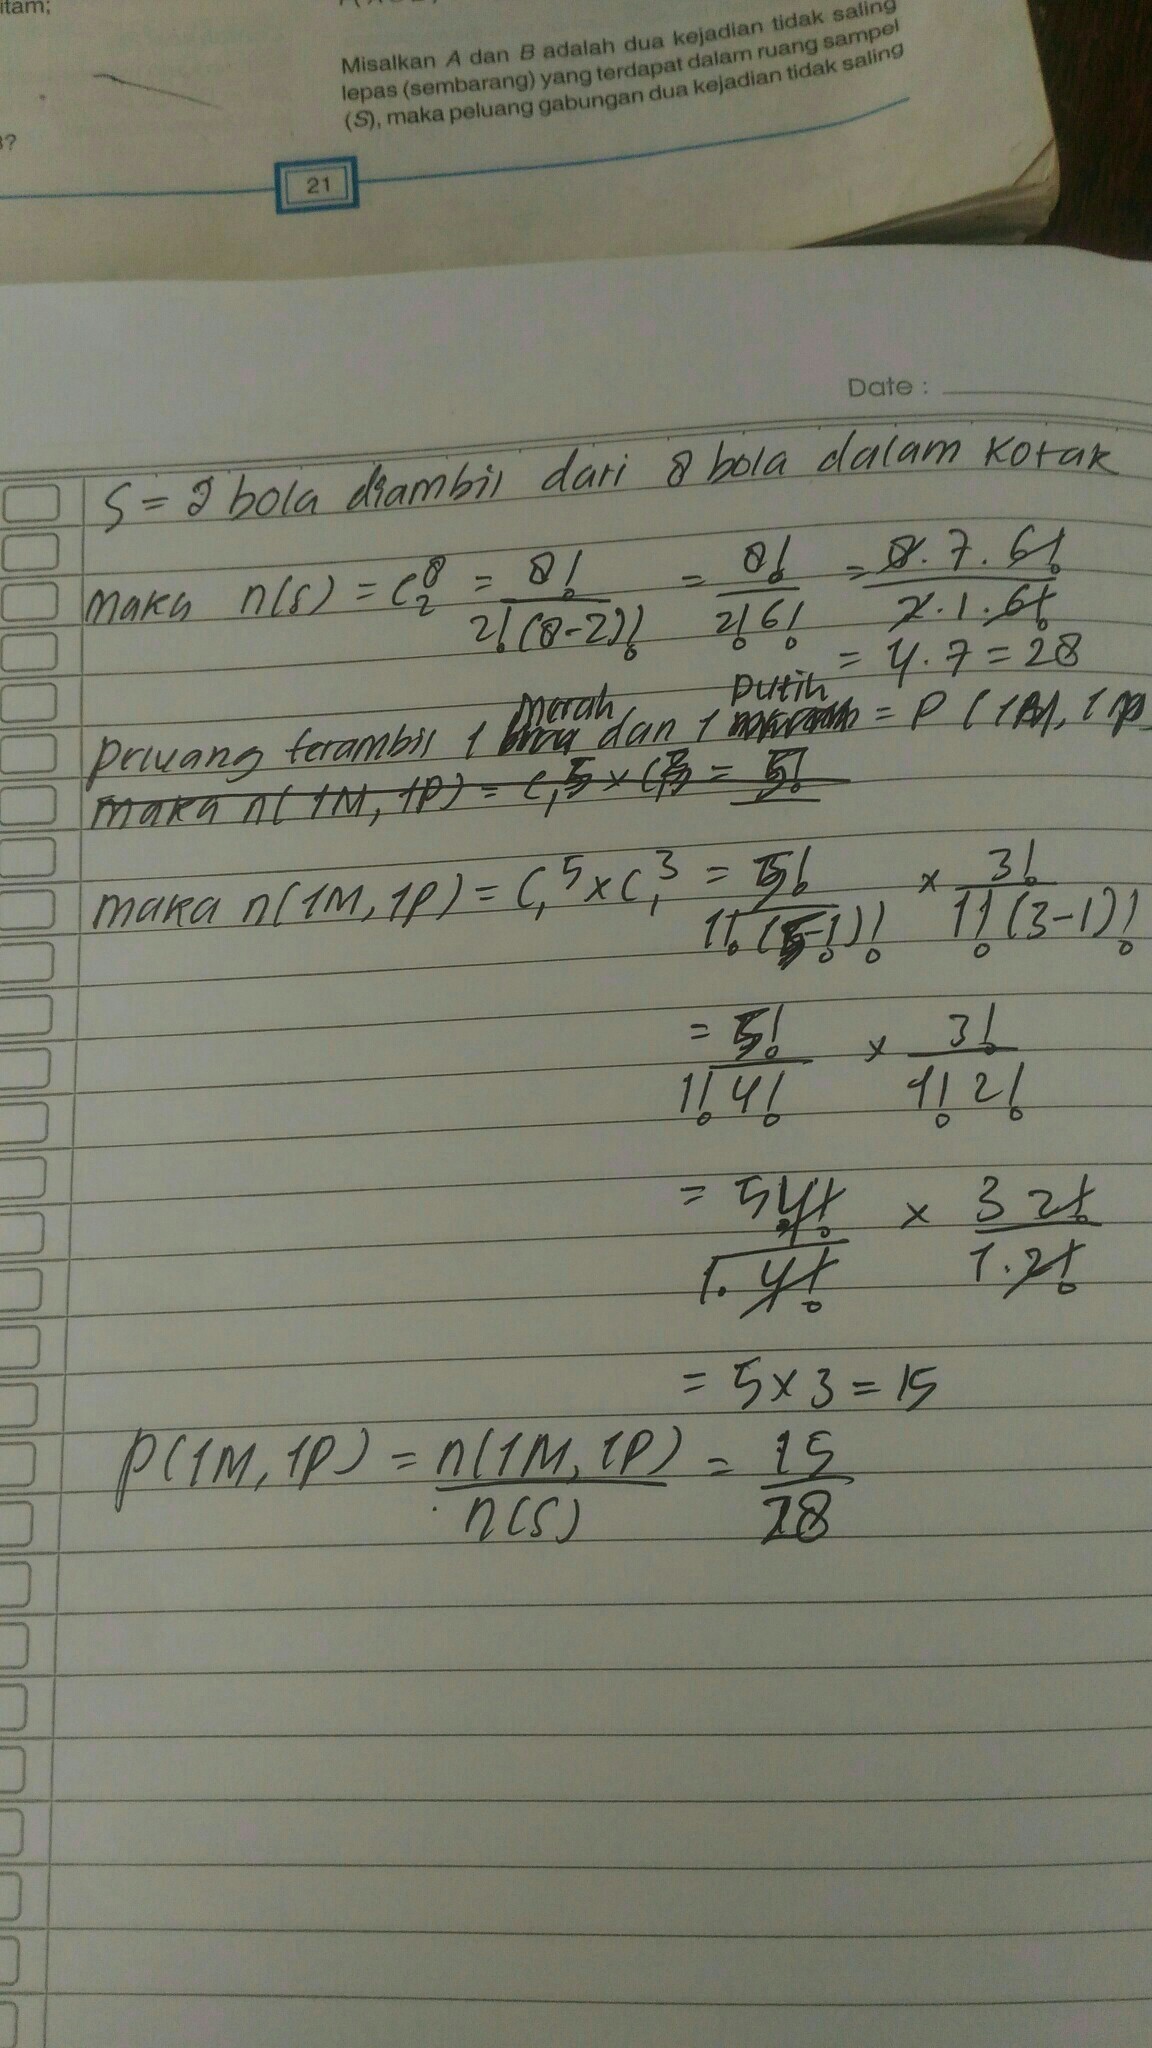 itam;
Misalkan A dan B adalah dua kejadian tidak saling
lepas (sembarang) yang terdapat dalam ruang sampel
(S), maka peluang gabungan dua kejadian tidak saling
?
21
Date :
S = 2 bola diambil dari 8 bola dalam kotak
maka n(s) = C₂⁸ = 8!/2!(8-2)! = 8!/2!6! = 8.7.6!/2.1.6!
= 4.7 = 28
merah putih
peluang terambil 1 dan 1 = P (1M, 1P
maka n(1M, 1P) = C₁⁵ x C₁³ = 5!
maka n(1M, 1P) = C₁⁵ x C₁³ = 5!/1!(5-1)! x 3!/1!(3-1)!
= 5!/1!4! x 3!/1!2!
= 5 4!/1.4! x 3 2!/1.2!
= 5 x 3 = 15
P(1M, 1P) = n(1M, 1P)/n(S) = 15/28